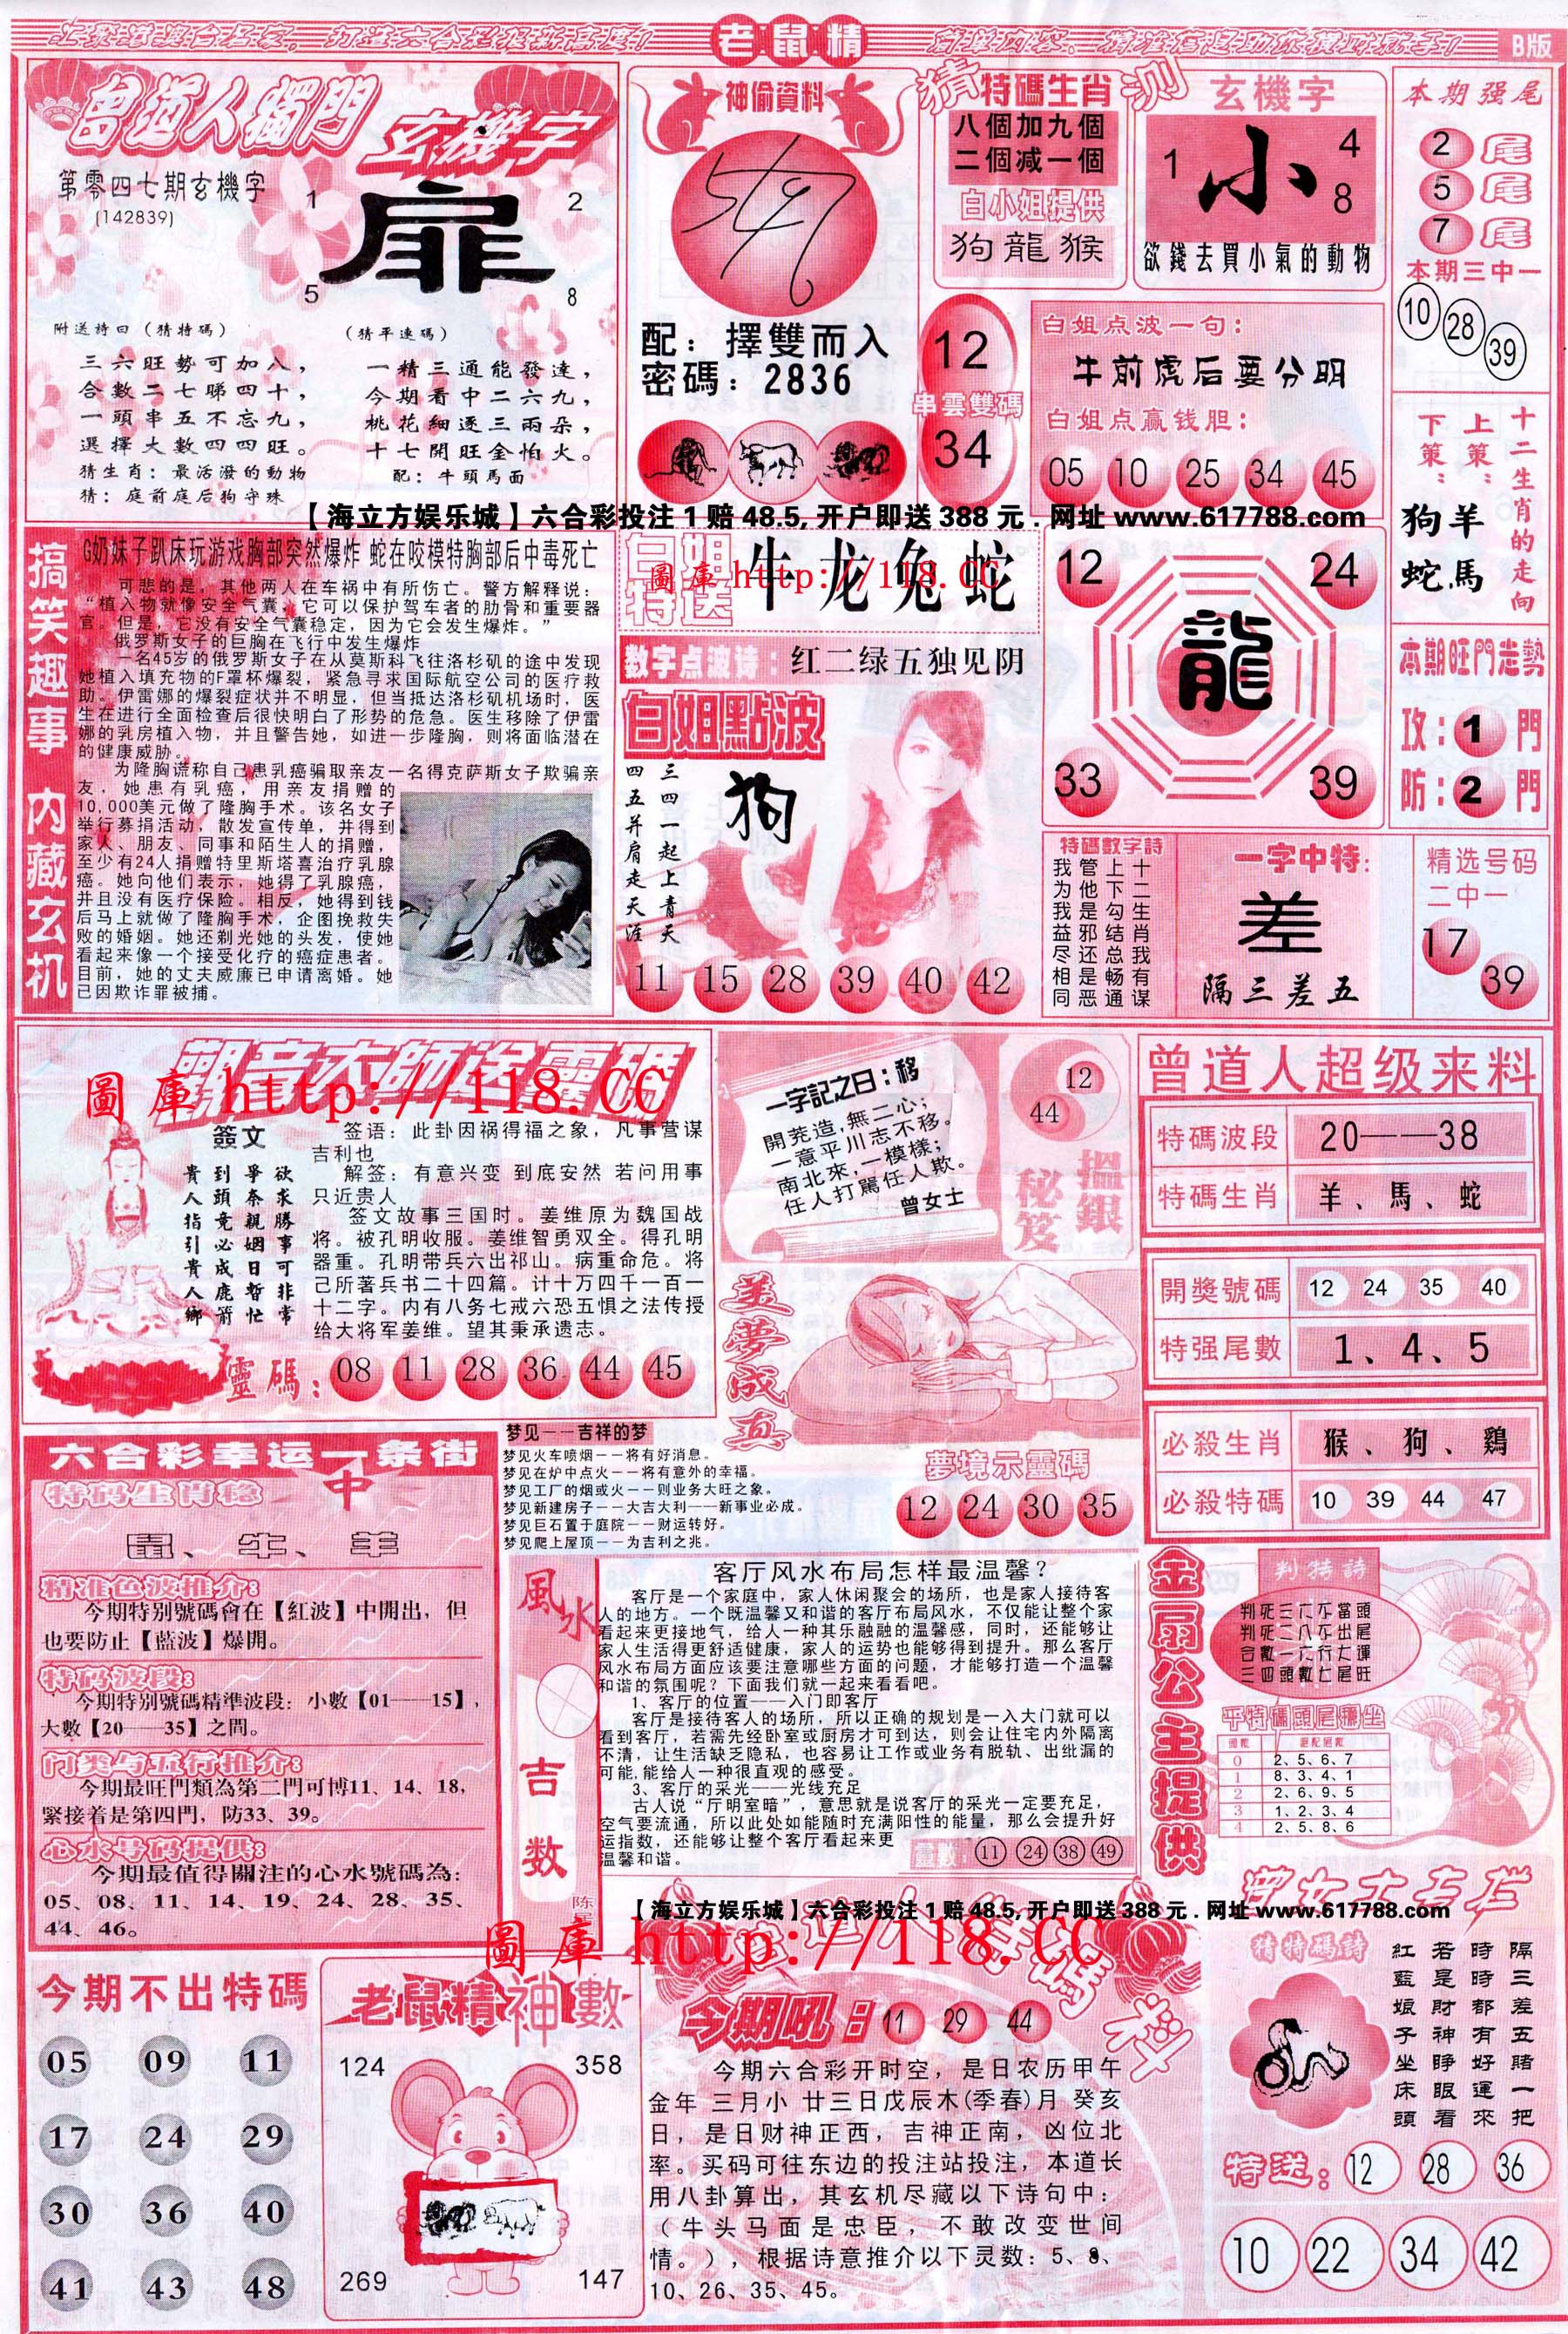 老鼠精
B版
曾道人獨門
玄機字
第零四七期玄機字
(142839)
1
2
扉
5
8
附送持曰（猜特碼）
三六旺勢可加八，
合數二七睇四十，
一頭串五不忘九，
選擇大數四四旺。
猜生肖：最活潑的動物
猜：庭前庭后狗守珠
（猜平連碼）
一精三通能發達，
今期看中二六九，
桃花細逐三兩朵，
十七開旺金怕火。
配：牛頭馬面
神偷資料
配：擇雙而入
密碼：2836
猜測
特碼生肖
八個加九個
二個减一個
白小姐提供
狗龍猴
玄機字
1
小
4
8
欲錢去買小氣的動物
本期强尾
2尾
5尾
7尾
本期三中一
10
28
39
12
串雲雙碼
34
白姐点波一句：
牛前虎后要分明
白姐点赢钱胆：
05 10 25 34 45
十二生肖的走向
上策：
下策：
狗羊
蛇馬
【海立方娱乐城】六合彩投注1赔48.5,开户即送388元.网址www.617788.com
搞笑趣事 内藏玄机
G奶妹子趴床玩游戏胸部突然爆炸 蛇在咬模特胸部后中毒死亡
可悲的是，其他两人在车祸中有所伤亡。警方解释说：
“植入物就像安全气囊，它可以保护驾车者的肋骨和重要器
官。但是，它没有安全气囊稳定，因为它会发生爆炸。”
俄罗斯女子的巨胸在飞行中发生爆炸
一名45岁的俄罗斯女子在从莫斯科飞往洛杉矶的途中发现
她植入填充物的F罩杯爆裂，紧急寻求国际航空公司的医疗救
助。伊雷娜的爆裂症状并不明显，但当抵达洛杉矶机场时，医
生在进行全面检查后很快明白了形势的危急。医生移除了伊雷
娜的乳房植入物，并且警告她，如进一步隆胸，则将面临潜在
的健康威胁。
为隆胸谎称自己患乳癌骗取亲友一名得克萨斯女子欺骗亲
友，她患有乳癌，用亲友捐赠的
10,000美元做了隆胸手术。该名女子
举行募捐活动，散发宣传单，并得到
家人、朋友、同事和陌生人的捐赠，
至少有24人捐赠特里斯塔喜治疗乳腺
癌。她向他们表示，她得了乳腺癌，
并且没有医疗保险。相反，她得到钱
后马上就做了隆胸手术，企图挽救失
败的婚姻。她还剃光她的头发，使她
看起来像一个接受化疗的癌症患者。
目前，她的丈夫威廉已申请离婚。她
已因欺诈罪被捕。
白姐特送
牛龙兔蛇
圖庫 http://118.CC
数字点波诗：红二绿五独见阴
白姐點波
三四一起上青天
四五并肩走天涯
狗
11 15 28 39 40 42
12
24
龍
33
39
本期旺門走勢
攻：1門
防：2門
特碼數字詩
十二生肖我有谋
上下勾结总畅通
管他是邪还是恶
我为我益尽相同
一字中特：
差
隔三差五
精选号码
二中一
17
39
觀音大師送靈碼
圖庫 http://118.CC
簽文
欲求勝事可非常
爭奈親姻日暫忙
到頭竟必成鹿箭
貴人指引貴人鄉
签语：此卦因祸得福之象，凡事营谋
吉利也
解签：有意兴变 到底安然 若问用事
只近贵人
签文故事三国时。姜维原为魏国战
将。被孔明收服。姜维智勇双全。得孔明
器重。孔明带兵六出祁山。病重命危。将
己所著兵书二十四篇。计十万四千一百一
十二字。内有八务七戒六恐五惧之法传授
给大将军姜维。望其秉承遗志。
靈碼：08 11 28 36 44 45
一字記之曰：移
開荒造，無二心；
一意平川志不移。
南北來，一模樣；
任人打罵任人欺。
曾女士
12
44
搵銀秘笈
美夢成真
曾道人超级来料
特碼波段 20——38
特碼生肖 羊、馬、蛇
開獎號碼 12 24 35 40
特强尾數 1、4、5
必殺生肖 猴、狗、鷄
必殺特碼 10 39 44 47
梦见——吉祥的梦
梦见火车喷烟——将有好消息。
梦见在炉中点火——将有意外的幸福。
梦见工厂的烟或火——则业务大旺之象。
梦见新建房子——大吉大利——新事业必成。
梦见巨石置于庭院——财运转好。
梦见爬上屋顶——为吉利之兆。
夢境示靈碼
12 24 30 35
六合彩幸运一条街
特码生肖稳中
鼠、牛、羊
精准色波推介：
今期特别號碼會在【紅波】中開出，但
也要防止【藍波】爆開。
特码波段：
今期特别號碼精準波段：小數【01——15】，
大數【20——35】之間。
门类与五行推介：
今期最旺門類為第二門可博11、14、18，
緊接着是第四門，防33、39。
心水号码提供：
今期最值得關注的心水號碼為：
05、08、11、14、19、24、28、35、
44、46。
風水吉数
客厅风水布局怎样最温馨？
客厅是一个家庭中，家人休闲聚会的场所，也是家人接待客
人的地方。一个既温馨又和谐的客厅布局风水，不仅能让整个家
看起来更接地气，给人一种其乐融融的温馨感，同时，还能够让
家人生活得更舒适健康，家人的运势也能够得到提升。那么客厅
风水布局方面应该要注意哪些方面的问题，才能够打造一个温馨
和谐的氛围呢？下面我们就一起来看看吧。
1、客厅的位置——入门即客厅
客厅是接待客人的场所，所以正确的规划是一入大门就可以
看到客厅，若需先经卧室或厨房才可到达，则会让住宅内外隔离
不清，让生活缺乏隐私，也容易让工作或业务有脱轨、出纰漏的
可能,能给人一种很直观的感受。
3、客厅的采光——光线充足
古人说“厅明室暗”，意思就是说客厅的采光一定要充足，
空气要流通，所以此处如能随时充满阳性的能量，那么会提升好
运指数，还能够让整个客厅看起来更
温馨和谐。
靈數：11 24 38 49
金扇公主提供
判特詩
判死三六不當頭
判死二八不出尾
合數一六行大運
三四頭數七尾旺
平特碼頭尾攤坐
0 2、5、6、7
1 8、3、4、1
2 2、6、9、5
3 1、2、3、4
4 2、5、8、6
【海立方娱乐城】六合彩投注1赔48.5,开户即送388元.网址www.617788.com
圖庫 http://118.CC
今期不出特碼
05 09 11
17 24 29
30 36 40
41 43 48
老鼠精神數
124
358
269
147
今期吼：11 29 44
今期六合彩开时空，是日农历甲午
金年 三月小 廿三日戊辰木(季春)月 癸亥
日，是日财神正西，吉神正南，凶位北
率。买码可往东边的投注站投注，本道长
用八卦算出，其玄机尽藏以下诗句中：
（牛头马面是忠臣，不敢改变世间
情。），根据诗意推介以下灵数：5、8、
10、26、35、45。
曾女士专栏
猜特碼詩
隔三差五賭一把
時時都有好運來
若是財神睜眼看
紅藍娘子坐床頭
特送：12 28 36
10 22 34 42